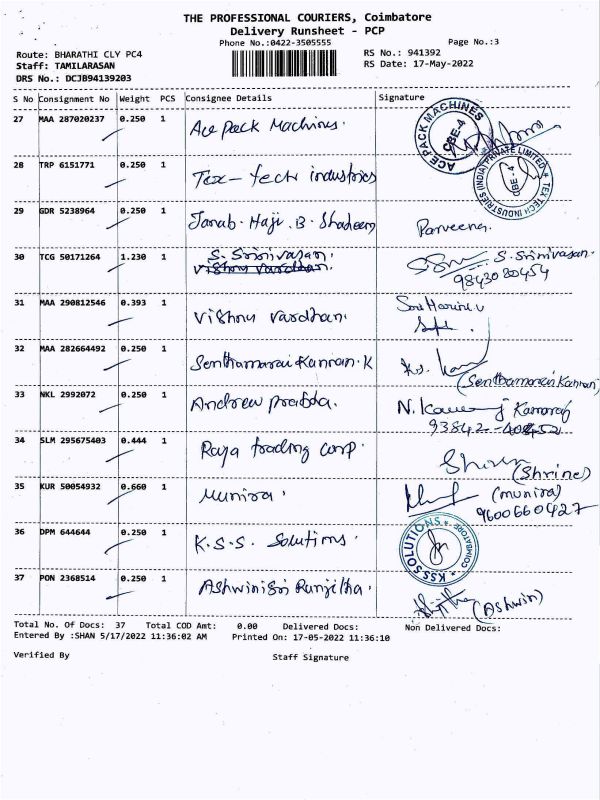 THE PROFESSIONAL COURIERS, Coimbatore
Delivery Runsheet - PCP
Phone No.:0422-3505555
Page No.:3
Route: BHARATHI CLY PC4
RS No.: 941392
Staff: TAMILARASAN
RS Date: 17-May-2022
DRS No.: DCJB94139203
S No Consignment No Weight PCS Consignee Details Signature
27 MAA 287020237 0.250 1 Ace Pack Machines.
ACE PACK MACHINES CBE-4
28 TRP 6151771 0.250 1 Tex-tech industries
TEX TECH INDUSTRIES (INDIA) PRIVATE LIMITED CBE - 4
29 GDR 5238964 0.250 1 Janab. Haji. B. Shadeem Parveena.
30 TCG 50171264 1.230 1 S. Srinivasan. S. Srinivasan.
Vishnu Vardhan. 9843080454
31 MAA 290812546 0.393 1 Vishnu Vardhan.
32 MAA 282664492 0.250 1 Senthamarai Kannan.K
(Senthamarai Kannan)
33 NKL 2992072 0.250 1 Andrew prabha. N. Kamaraj
34 SLM 295675403 0.444 1 Raja trading corp.
(Shrine)
35 KUR 50054932 0.660 1 Munira. (munira)
9600660427
36 DPM 644644 0.250 1 K.S.S. Solutions.
KSS SOLUTIONS COIMBATORE
37 PON 2368514 0.250 1 Ashwinisri Runjitha.
(Ashwin)
Total No. Of Docs: 37 Total COD Amt: 0.00 Delivered Docs: Non Delivered Docs:
Entered By :SHAN 5/17/2022 11:36:02 AM Printed On: 17-05-2022 11:36:10
Verified By Staff Signature